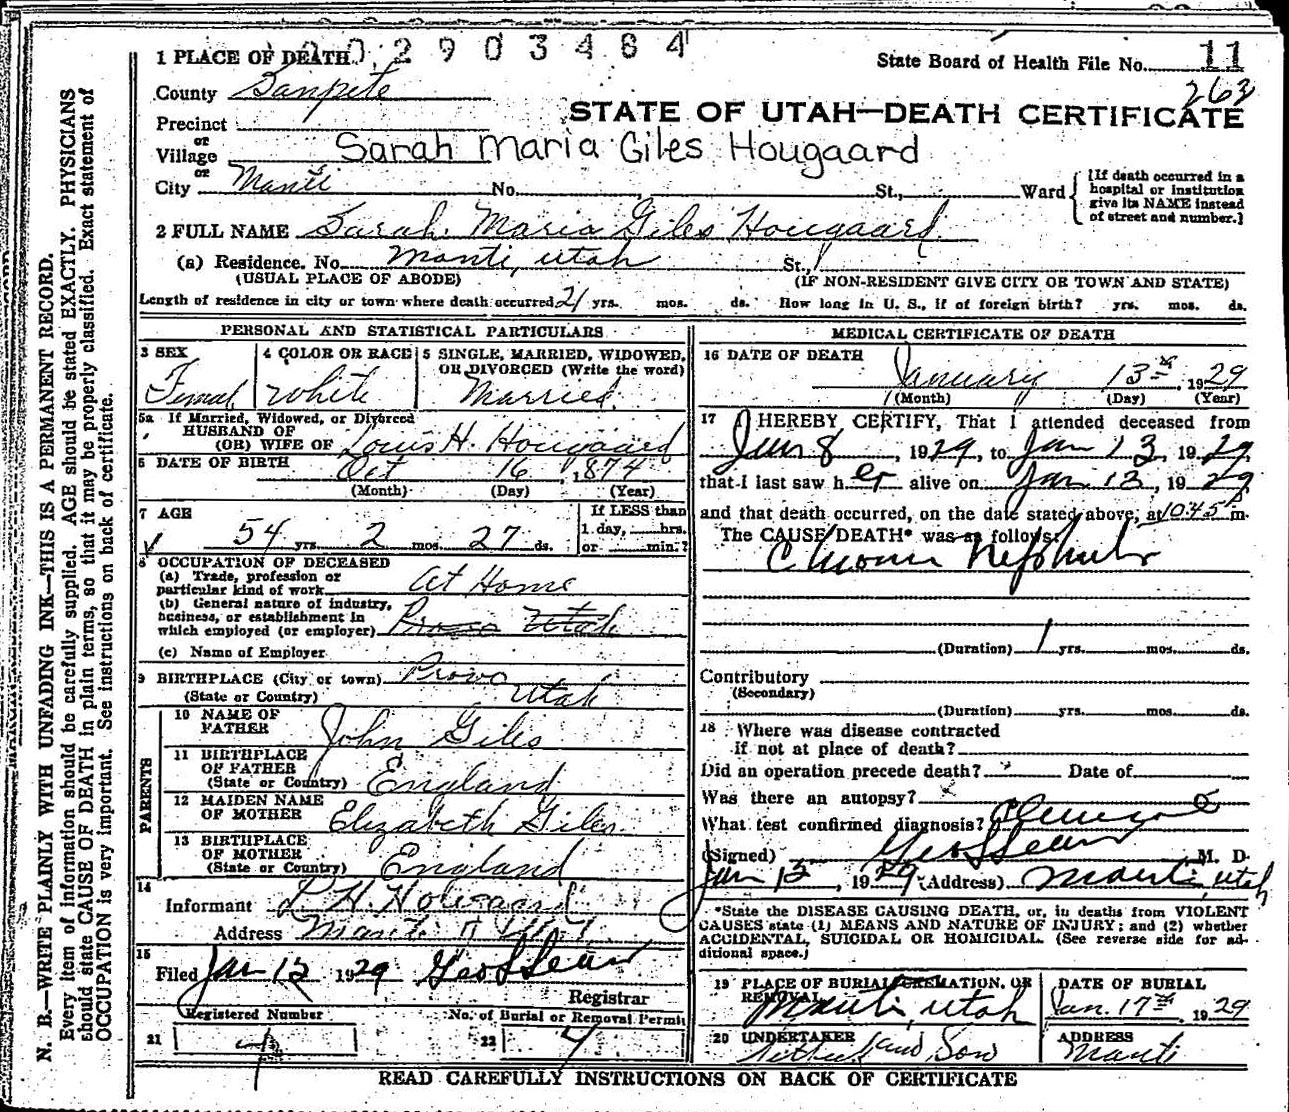 2903484
1 PLACE OF DEATH
State Board of Health File No. 11
263
County Sanpete
STATE OF UTAH—DEATH CERTIFICATE
Precinct
or
Village
Sarah Maria Giles Hougaard
or
City Manti No. , St., Ward
[If death occurred in a
hospital or institution
give its NAME instead
of street and number.]
2 FULL NAME Sarah Maria Giles Hougaard
(a) Residence. No. Manti, Utah St.,
(USUAL PLACE OF ABODE) (IF NON-RESIDENT GIVE CITY OR TOWN AND STATE)
Length of residence in city or town where death occurred 21 yrs. mos. ds. How long in U. S., if of foreign birth? yrs. mos. ds.
PERSONAL AND STATISTICAL PARTICULARS
3 SEX
Female
4 COLOR OR RACE
White
5 SINGLE, MARRIED, WIDOWED,
OR DIVORCED (Write the word)
Married
5a If Married, Widowed, or Divorced
HUSBAND OF
(OR) WIFE OF Louis H. Hougaard
6 DATE OF BIRTH Oct 16, 1874
(Month) (Day) (Year)
7 AGE
54 yrs. 2 mos. 27 ds.
If LESS than
1 day, hrs.
or min.?
8 OCCUPATION OF DECEASED
(a) Trade, profession or
particular kind of work At Home
(b) General nature of industry,
business, or establishment in
which employed (or employer) Provo Utah
(c) Name of Employer
9 BIRTHPLACE (City or town) Provo
(State or Country) Utah
PARENTS
10 NAME OF
FATHER John Giles
11 BIRTHPLACE
OF FATHER
(State or Country) England
12 MAIDEN NAME
OF MOTHER Elizabeth Giles
13 BIRTHPLACE
OF MOTHER
(State or Country) England
14
Informant L. H. Hougaard
Address Manti Utah
15
Filed Jan 15 1929
Registrar
Registered Number No. of Burial or Removal Permit
21 22
MEDICAL CERTIFICATE OF DEATH
16 DATE OF DEATH
January 13th, 1929
(Month) (Day) (Year)
17 I HEREBY CERTIFY, That I attended deceased from
Jan 8, 1929, to Jan 13, 1929,
that I last saw her alive on Jan 13, 1929,
and that death occurred, on the date stated above, at 10:45 m.
The CAUSE DEATH* was as follows:
Chronic Nephritis
(Duration) 1 yrs. mos. ds.
Contributory
(Secondary)
(Duration) yrs. mos. ds.
18 Where was disease contracted
if not at place of death?
Did an operation precede death? Date of
Was there an autopsy?
What test confirmed diagnosis?
(Signed) , M. D.
Jan 15, 1929 (Address) Manti, Utah
*State the DISEASE CAUSING DEATH, or, in deaths from VIOLENT
CAUSES state (1) MEANS AND NATURE OF INJURY; and (2) whether
ACCIDENTAL, SUICIDAL OR HOMICIDAL. (See reverse side for ad-
ditional space.)
19 PLACE OF BURIAL, CREMATION, OR
REMOVAL
Manti, Utah
DATE OF BURIAL
Jan. 17th, 1929
20 UNDERTAKER
and Son
ADDRESS
Manti
READ CAREFULLY INSTRUCTIONS ON BACK OF CERTIFICATE
N. B.—WRITE PLAINLY WITH UNFADING INK—THIS IS A PERMANENT RECORD.
Every item of information should be carefully supplied. AGE should be stated EXACTLY. PHYSICIANS
should state CAUSE OF DEATH in plain terms, so that it may be properly classified. Exact statement of
OCCUPATION is very important. See instructions on back of certificate.